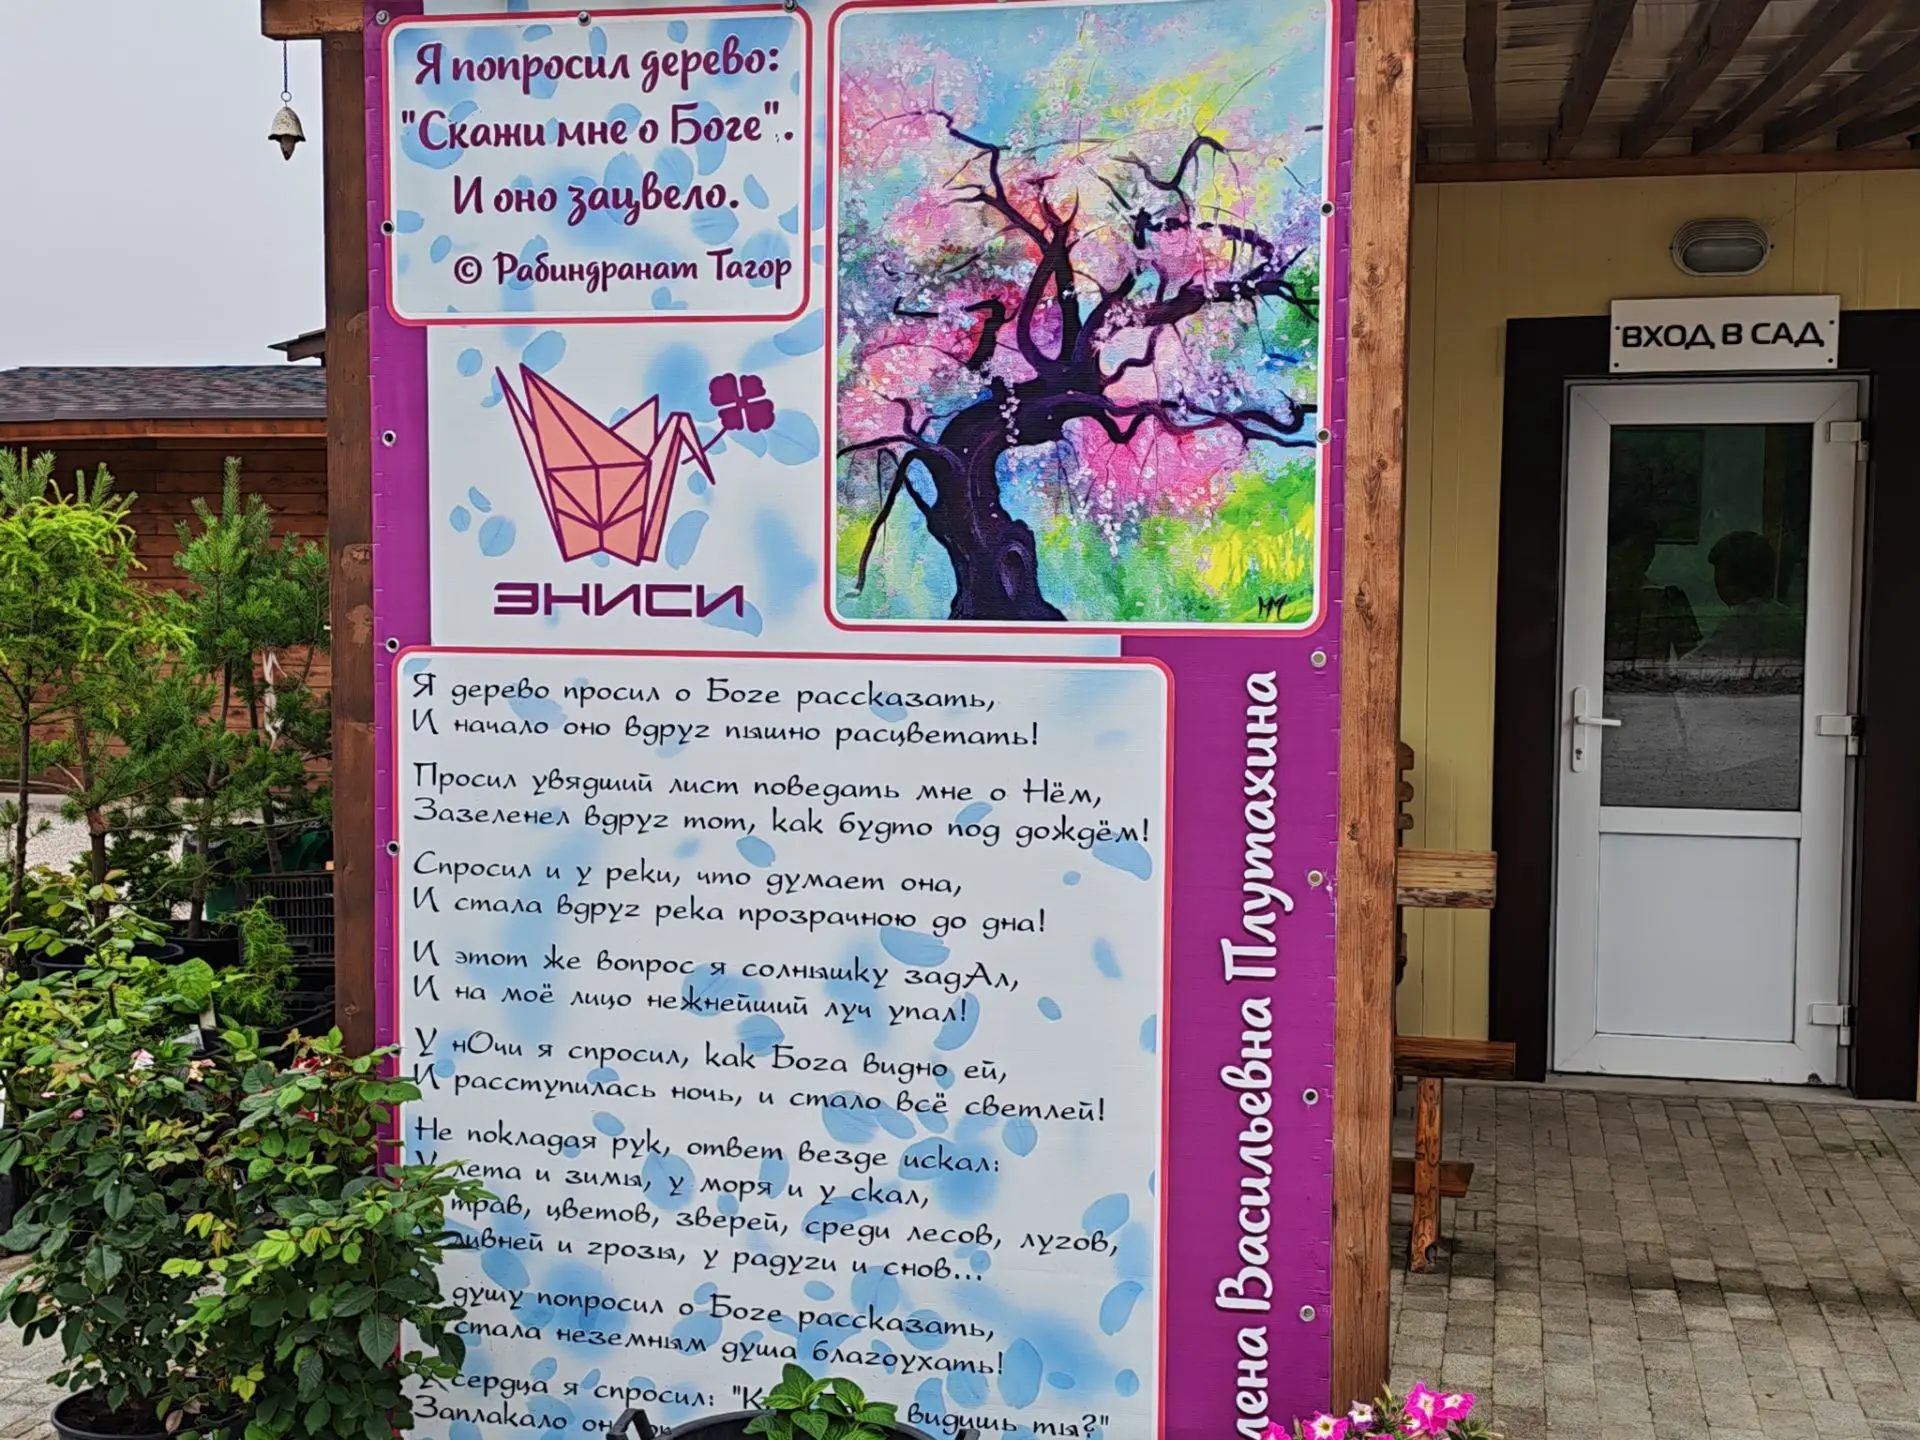 Я попросил дерево:
"Скажи мне о Боге".
И оно зацвело.
© Рабиндранат Тагор
ЭНИСИ
ММ
ВХОД В САД
Я дерево просил о Боге рассказать,
И начало оно вдруг пышно расцветать!
Просил увядший лист поведать мне о Нём,
Зазеленел вдруг тот, как будто под дождём!
Спросил и у реки, что думает она,
И стала вдруг река прозрачною до дна!
И этот же вопрос я солнышку задАл,
И на моё лицо нежнейший луч упал!
У нОчи я спросил, как Бога видно ей,
И расступилась ночь, и стало всё светлей!
Не покладая рук, ответ везде искал:
У лета и зимы, у моря и у скал,
трав, цветов, зверей, среди лесов, лугов,
ливней и грозы, у радуги и снов...
душу попросил о Боге рассказать,
стала неземным душа благоухать!
сердца я спросил: "К видишь ты?"
Заплакало
лена Васильевна Плутахина